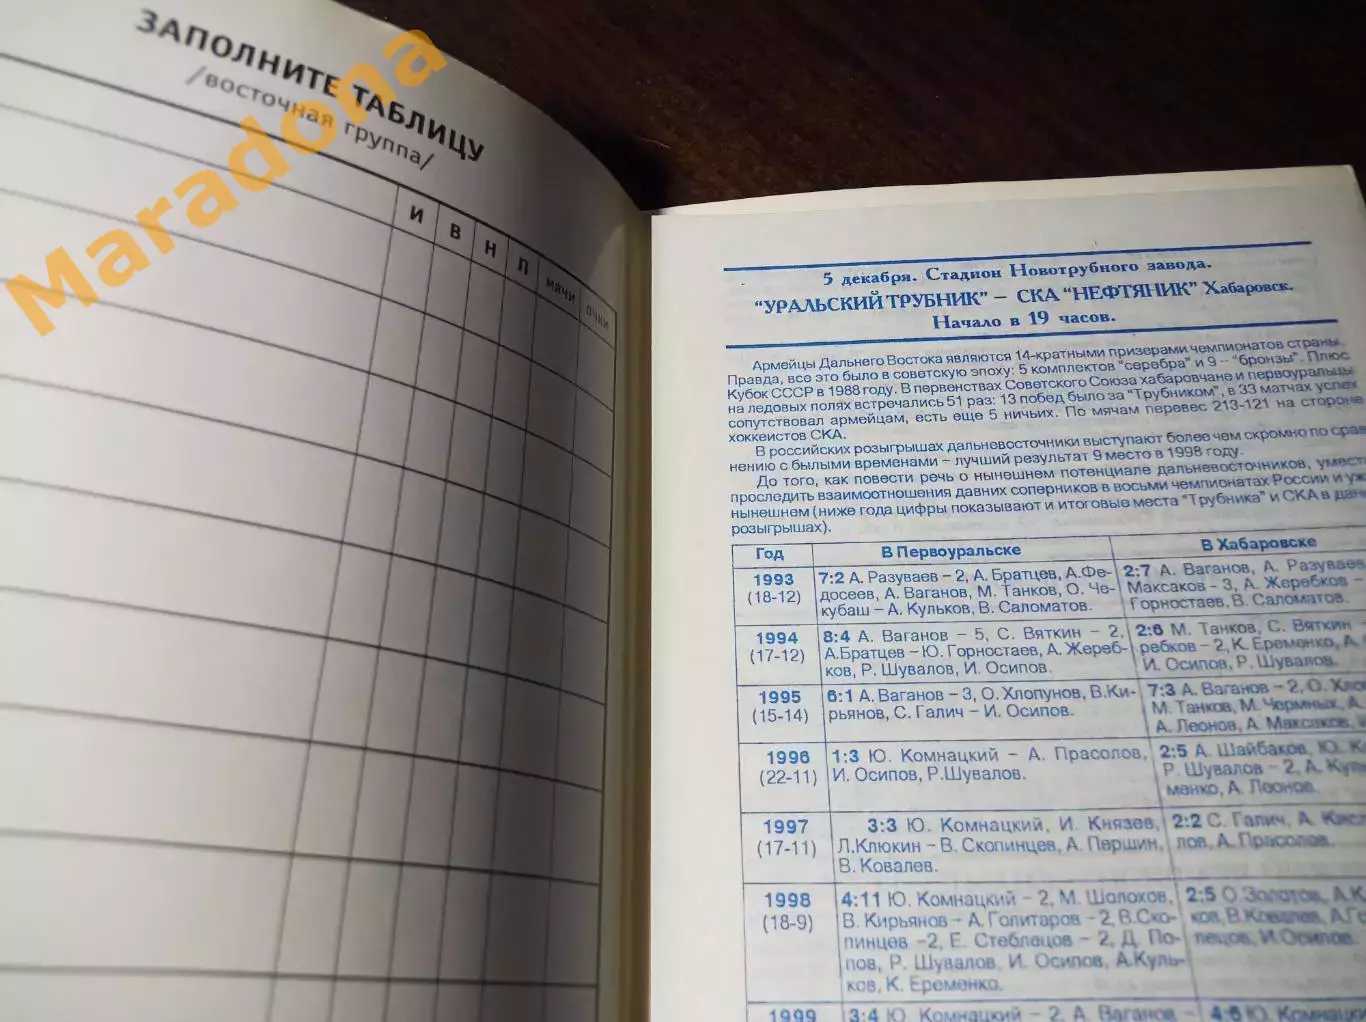 ЗАПОЛНИТЕ ТАБЛИЦУ
/восточная группа/
И В Н П МЯЧИ ОЧКИ
Maradona
5 декабря. Стадион Новотрубного завода.
"УРАЛЬСКИЙ ТРУБНИК" – СКА "НЕФТЯНИК" Хабаровск.
Начало в 19 часов.
Армейцы Дальнего Востока являются 14-кратными призерами чемпионатов страны.
Правда, все это было в советскую эпоху: 5 комплектов "серебра" и 9 – "бронзы". Плюс
Кубок СССР в 1988 году. В первенствах Советского Союза хабаровчане и первоуральцы
на ледовых полях встречались 51 раз: 13 побед было за "Трубником", в 33 матчах успех
сопутствовал армейцам, есть еще 5 ничьих. По мячам перевес 213-121 на стороне
хоккеистов СКА.
В российских розыгрышах дальневосточники выступают более чем скромно по срав
нению с былыми временами – лучший результат 9 место в 1998 году.
До того, как повести речь о нынешнем потенциале дальневосточников, умест
проследить взаимоотношения давних соперников в восьми чемпионатах России и уж
нынешнем (ниже года цифры показывают и итоговые места "Трубника" и СКА в дан
розыгрышах).
Год В Первоуральске В Хабаровске
1993 7:2 А. Разуваев – 2, А. Братцев, А.Фе- 2:7 А. Ваганов, А. Разуваев
(18-12) досеев, А. Ваганов, М. Танков, О. Че- Максаков - 3, А. Жеребков –
кубаш – А. Кульков, В. Саломатов. Горностаев, В. Саломатов.
1994 8:4 А. Ваганов – 5, С. Вяткин – 2, 2:6 М. Танков, С. Вяткин –
(17-12) А.Братцев – Ю. Горностаев, А. Жереб- ребков – 2, К. Еременко, А.
ков, Р. Шувалов, И. Осипов. И. Осипов, Р. Шувалов.
1995 6:1 А. Ваганов – 3, О. Хлопунов, В.Ки- 7:3 А. Ваганов – 2, О. Хлоп
(15-14) рьянов, С. Галич – И. Осипов. М. Танков, М. Чермных, А.
А. Леонов, А. Максаков,
1996 1:3 Ю. Комнацкий – А. Прасолов, 2:5 А. Шайбаков, Ю. К
(22-11) И. Осипов, Р.Шувалов. Р. Шувалов – 2, А. Куль
менко, А. Леонов.
1997 3:3 Ю. Комнацкий, И. Князев, 2:2 С. Галич, А. Кисл
(17-11) Л.Клюкин – В. Скопинцев, А. Першин, лов, А. Прасолов.
В. Ковалев.
1998 4:11 Ю. Комнацкий – 2, М. Шолохов, 2:5 О.Золотов, А.К
(18-9) В. Кирьянов – А. Голитаров – 2, В.Ско- ков, В.Ковалев, А.Го
пинцев –2, Е. Стеблецов – 2, Д. По- лецов, И.Осипов.
пов, Р. Шувалов, И. Осипов, А.Куль-
ков, К. Еременко.
1999 3:4 Ю. Комнацкий – 2, А. Ваганов – 4:6 Ю. Комнацки